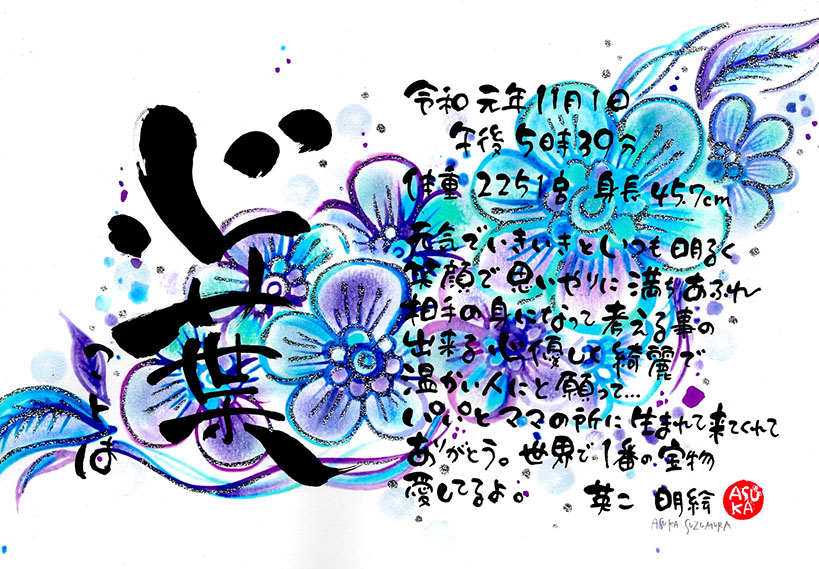 心葉
ことは
令和元年11月1日
午後5時30分
体重2251g 身長45.7cm
元気でいきいきといつも明るく
笑顔で思いやりに満ちあふれ
相手の身になって考える事の
出来る心優しく綺麗で
温かい人にと願って…
パパとママの所に生まれて来てくれて
ありがとう。世界で1番の宝物
愛してるよ。 英二 明絵
ASUKA
ASUKA SUZUMURA